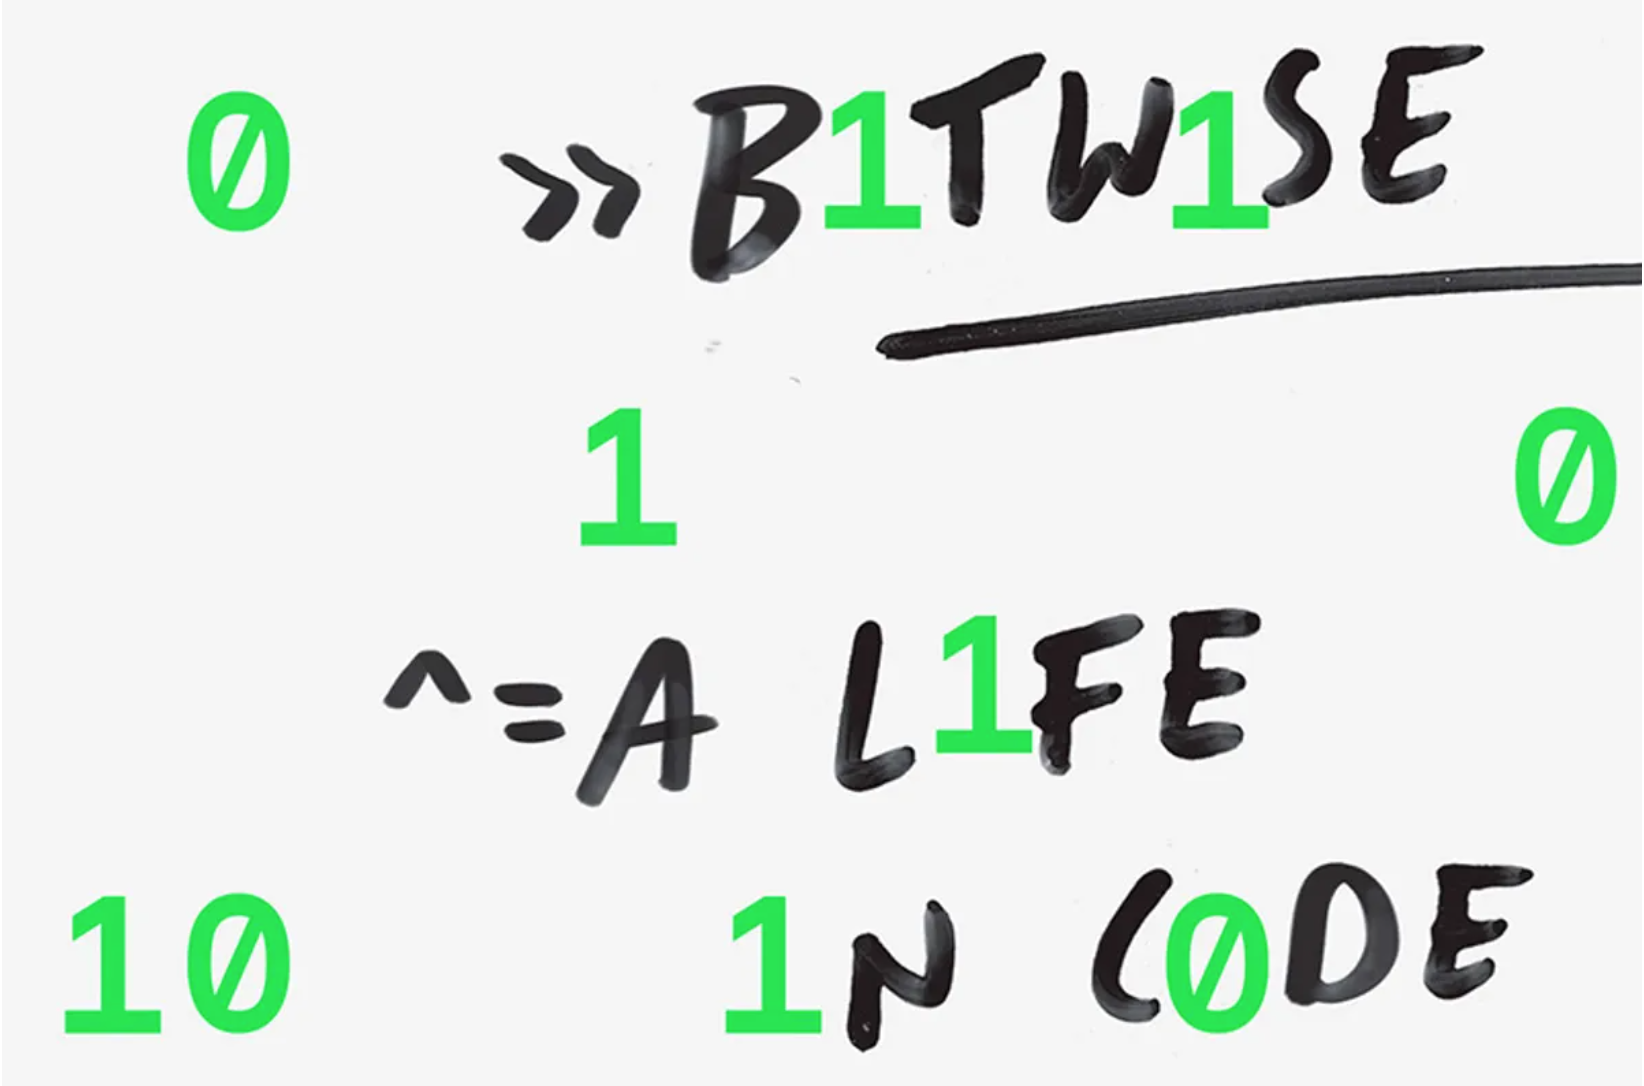 0 »B1TW1SE
1 0
^=A L1FE
10 1N C0DE